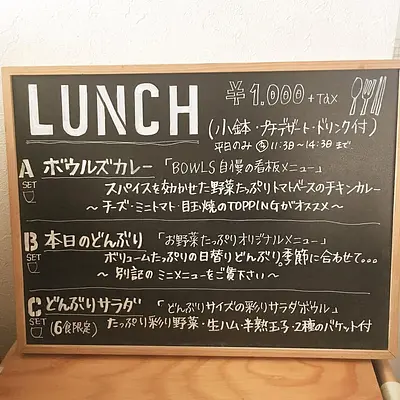 LUNCH ¥1.000 +Tax
(小鉢・プチデザート・ドリンク付)
平日のみ 11:30~14:30まで
A SET ボウルズカレー 「BOWLS自慢の看板メニュー」
スパイスを効かせた野菜たっぷりトマトベースのチキンカレー
~チーズ・ミニトマト・目玉焼のTOPPINGがオススメ~
B SET 本日のどんぶり 「お野菜たっぷりオリジナルメニュー」
ボリュームたっぷりの日替りどんぶり。季節に合わせて。。。
~別記のミニメニューをご覧下さい~
C SET どんぶりサラダ 「どんぶりサイズの彩りサラダボウル」
(6食限定) たっぷり彩り野菜・生ハム・半熟玉子・2種のバケット付